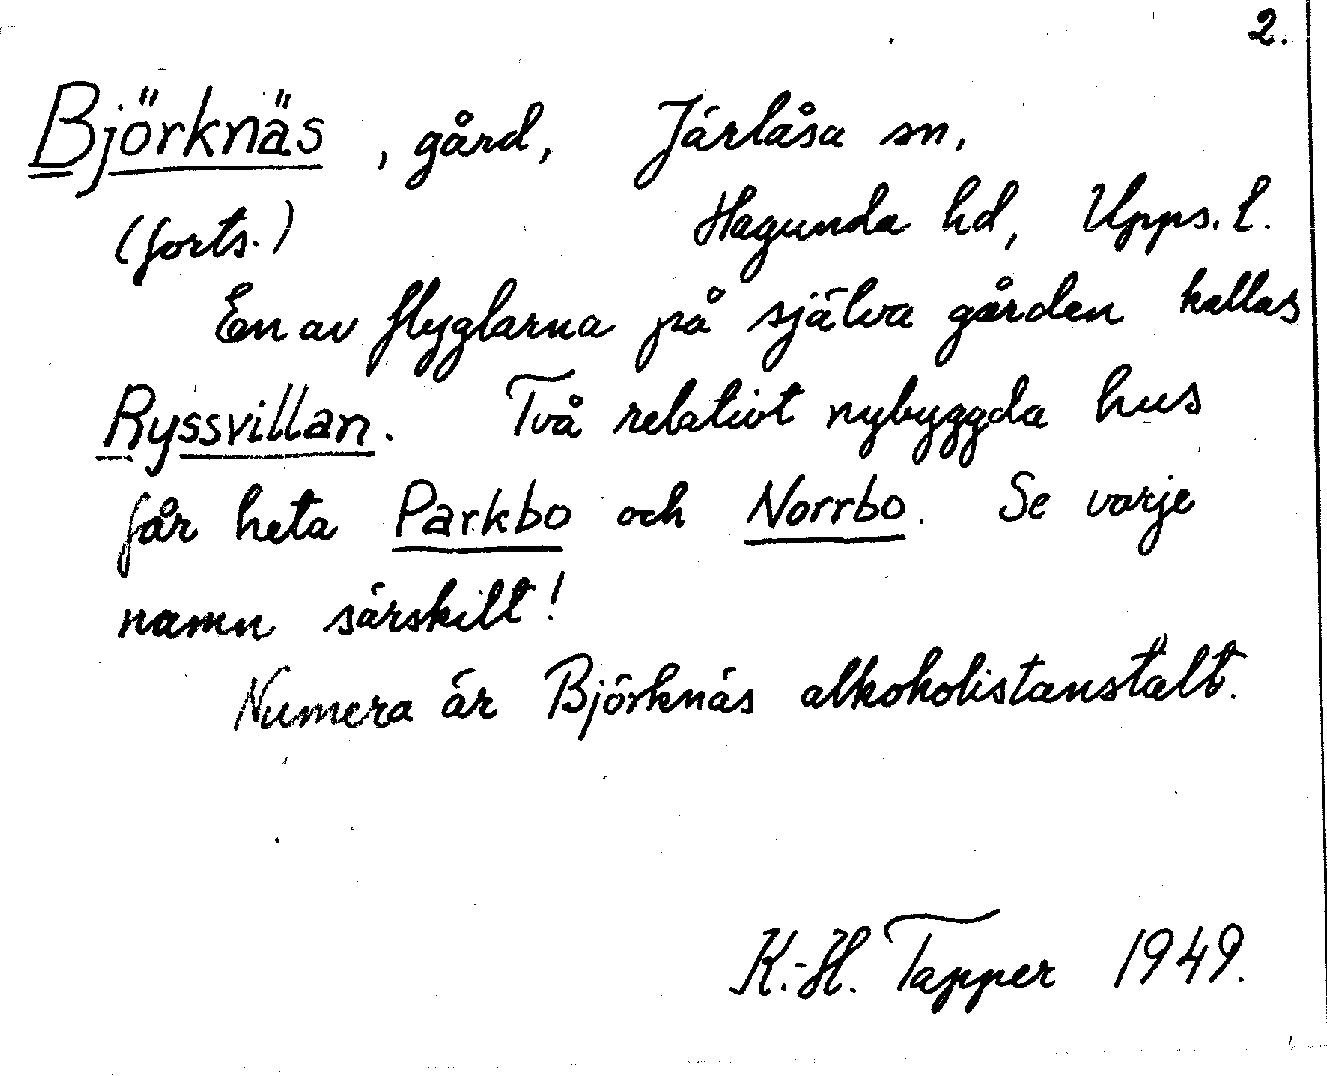 2.
Björknäs, gård, Järlåsa sn,
(forts.) Hagunda hd, Upps. l.
En av flyglarna på själva gården kallas
Ryssvillan. Två relativt nybyggda hus
får heta Parkbo och Norrbo. Se varje
namn särskilt!
Numera är Björknäs alkoholistanstalt.
K.-H. Tapper 1949.